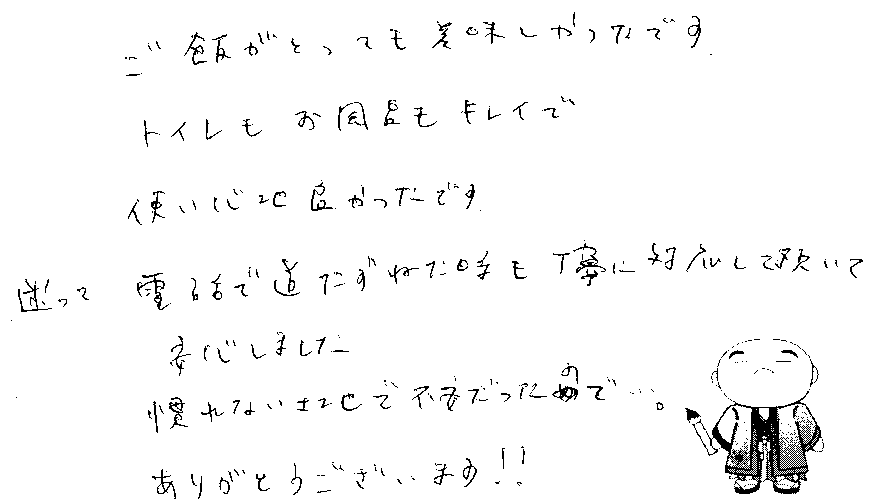 ご飯がとっても美味しかったです
トイレもお風呂もキレイで
使い心地良かったです
迷って 電話で道たずねた時も丁寧に対応して頂いて
安心しました
慣れない土地で不安だったので…。
ありがとうございます!!